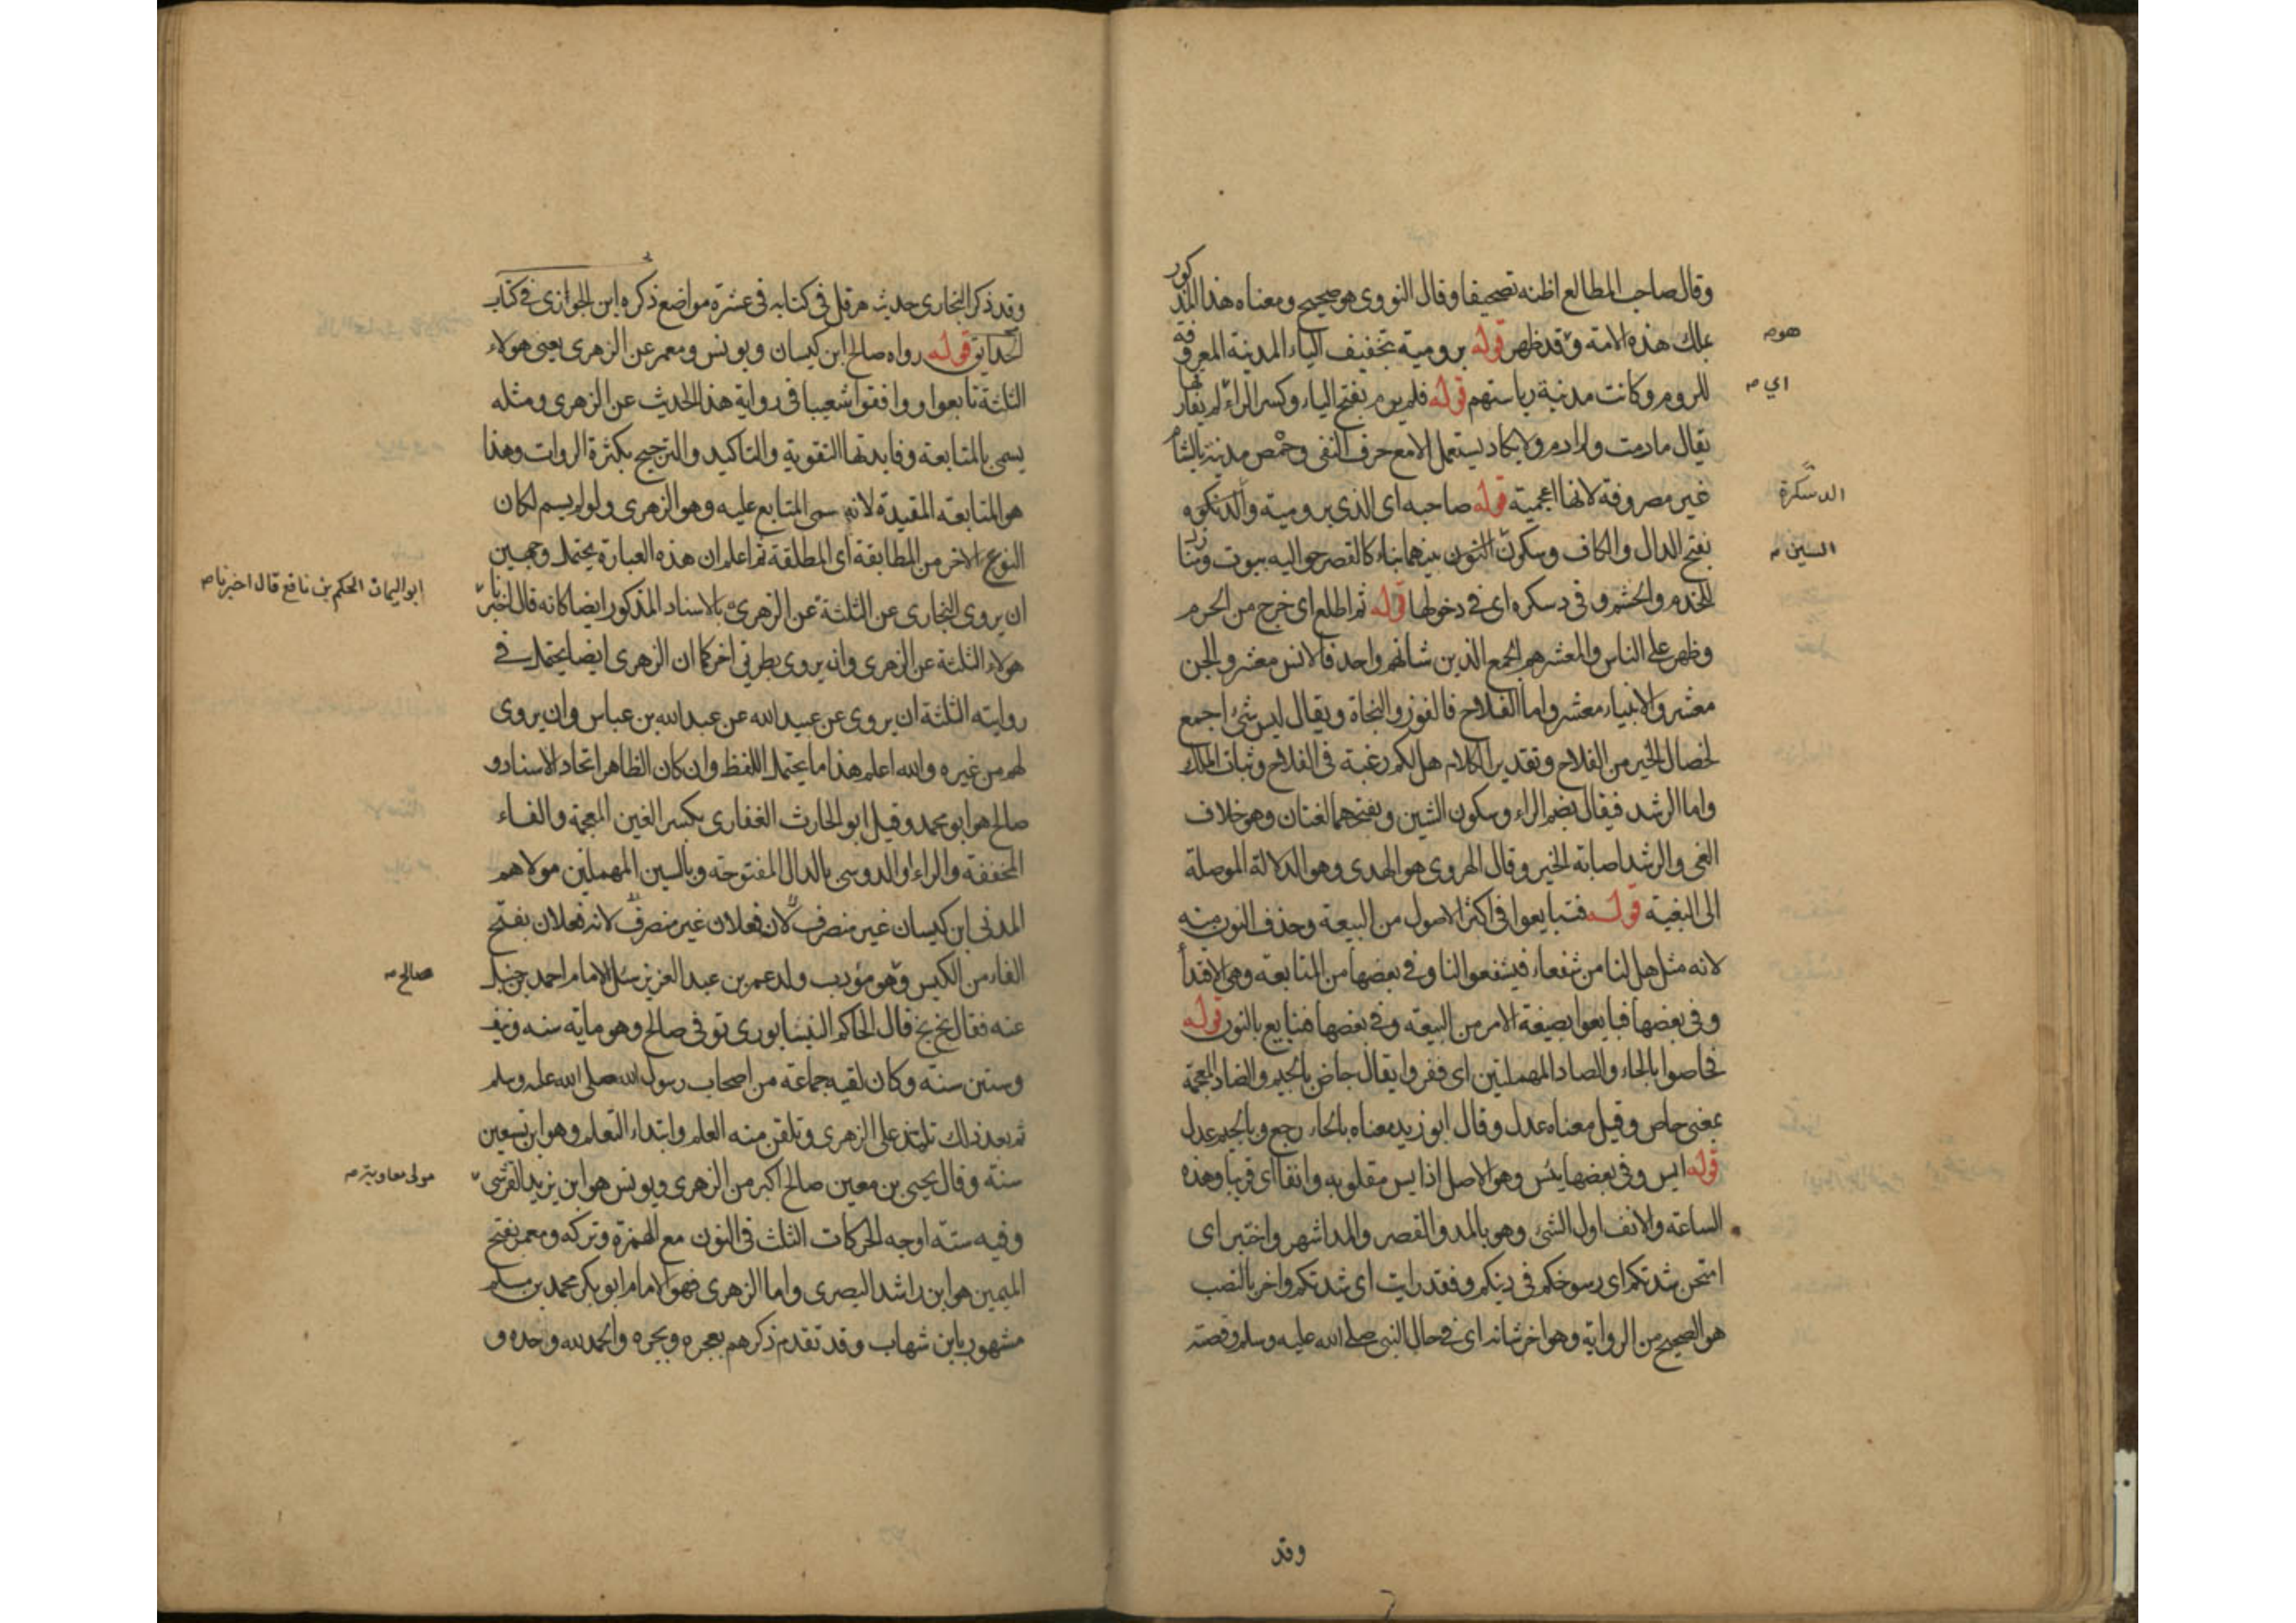 وقال صاحب المطالع اظنه تصحيفا وقال النووى هو صحيح ومعناه هذا المذكور
يملك هذه الامة وقد ظهر قوله برومية بتخفيف الياء المدينة المعروفة
للروم وكانت مدينة رياستهم قوله فلم يرم بفتح الياء وكسر الراء لم يفارقها
يقال مارمت ولم ارم ولا يكاد يستعمل الا مع حرف النفى وحمص مدينة بالشام
غير مصروفة لانها اعجمية قوله صاحبه اى الذى برومية والدسكره
بفتح الدال والكاف وسكون النون بينهما بناء كالقصر حواليه بيوت ومنازل
للخدم والحشم وفى دسكره اى فى دخولها قوله ثم اطلع اى خرج من الحرم
وظهر على الناس والمعشر هم الجمع الذين شانهم واحد فالانس معشر والجن
معشر والانبياء معشر واما الفلاح فالفوز والنجاة ويقال ليس شئ اجمع
لخصال الخير من الفلاح وتقدير الكلام هل لكم رغبة فى الفلاح وثبات الملك
واما الرشد فيقال بضم الراء وسكون الشين وبفتحهما لغتان وهو خلاف
الغى والرشد اصابة الخير وقال الهروى هو الهدى وهو الدلالة الموصلة
الى البغية قوله فتبايعوا فى اكثر الاصول من البيعة وحذف النون منه
لانه مثل هل لنا من شفعاء فيشفعوا لنا وفى بعضها من المتابعة وهى الاقتداء
وفى بعضها فبايعوا بصيغة الامر من البيعة وفى بعضها فنبايع بالنون قوله
فحاصوا بالحاء والصاد المهملتين اى ففروا يقال جاض بالجيم والضاد المعجمة
بمعنى حاص وقيل معناه عدل وقال ابو زيد معناه بالحاء رجع وبالجيم عدل
قوله ايس وفى بعضها يئس وهو الاصل اذ ايس مقلوبه وانفا اى قريبا وهذه
الساعة والانف اول الشئ وهو بالمد والقصر والمد اشهر واختبر اى
امتحن شدتكم اى رسوخكم فى دينكم وفقد رايت اى شدتكم واخر بالنصب
هو الصحيح من الرواية وهو اخر شانه اى فى حال النبى صلى الله عليه وسلم وقصته
هو صح
اي صح
الدسكرة
السين صح
وقد
وقد ذكر البخارى حديث هرقل فى كتابه فى عشرة مواضع ذكره ابن الجوازى فى كتاب
الحدايق قوله رواه صالح ابن كيسان ويونس ومعمر عن الزهرى يعنى هولاء
الثلثة تابعوا ووافقوا شعيبا فى رواية هذا الحديث عن الزهرى ومثله
يسمى بالمتابعة وفايدتها التقوية والتاكيد والترجيح بكثرة الروات وهذا
هو المتابعة المقيدة لانه سمى المتابع عليه وهو الزهرى ولو لم يسم لكان
النوع الاخر من المطابقة اى المطلقة ثم اعلم ان هذه العبارة يحتمل وجهين
ان يروى البخارى عن الثلثة عن الزهرى بالاسناد المذكور ايضا كانه قال اخبرنا
هولاء الثلثة عن الزهرى وان يروى بطريق اخر كما ان الزهرى ايضا يحتمل فى
روايته الثلثة ان يروى عن عبيد الله عن عبد الله بن عباس وان يروى
لهم من غيره والله اعلم هذا ما يحتمل اللفظ وان كان الظاهر اتحاد الاسناد و
صالح هو ابو محمد وقيل ابو الحارث الغفارى بكسر الغين المعجمة والفاء
المخففة والراء او الدوسى بالدال المفتوحة وبالسين المهملتين مولاهم
المدنى ابن كيسان غير منصرف لان فعلان غير منصرف لانه فعلان بفتح
الفاء من الكيس وهو مؤدب ولد عمر بن عبد العزيز سئل الامام احمد بن حنبل
عنه فقال بخ بخ قال الحاكم النيسابورى توفى صالح وهو ماية سنه ونيف
وستين سنة وكان لقيه جماعة من اصحاب رسول الله صلى الله عليه وسلم
ثم بعد ذلك تلمذ على الزهرى وتلقن منه العلم وابتداء التعلم وهو ابن تسعين
سنة وقال يحيى بن معين صالح اكبر من الزهرى ويونس هو ابن يزيد القرشى
وفيه ستة اوجه الحركات الثلث فى النون مع الهمزة وتركه ومعمر بفتح
الميمين هو ابن راشد البصرى واما الزهرى فهو الامام ابو بكر محمد بن مسلم
مشهور بابن شهاب وقد تقدم ذكرهم بعجره وبجره والحمد لله وحده و
ابو اليمان الحكم بن نافع قال اخبرنا صح
صالح صح
مولى معاوية صح